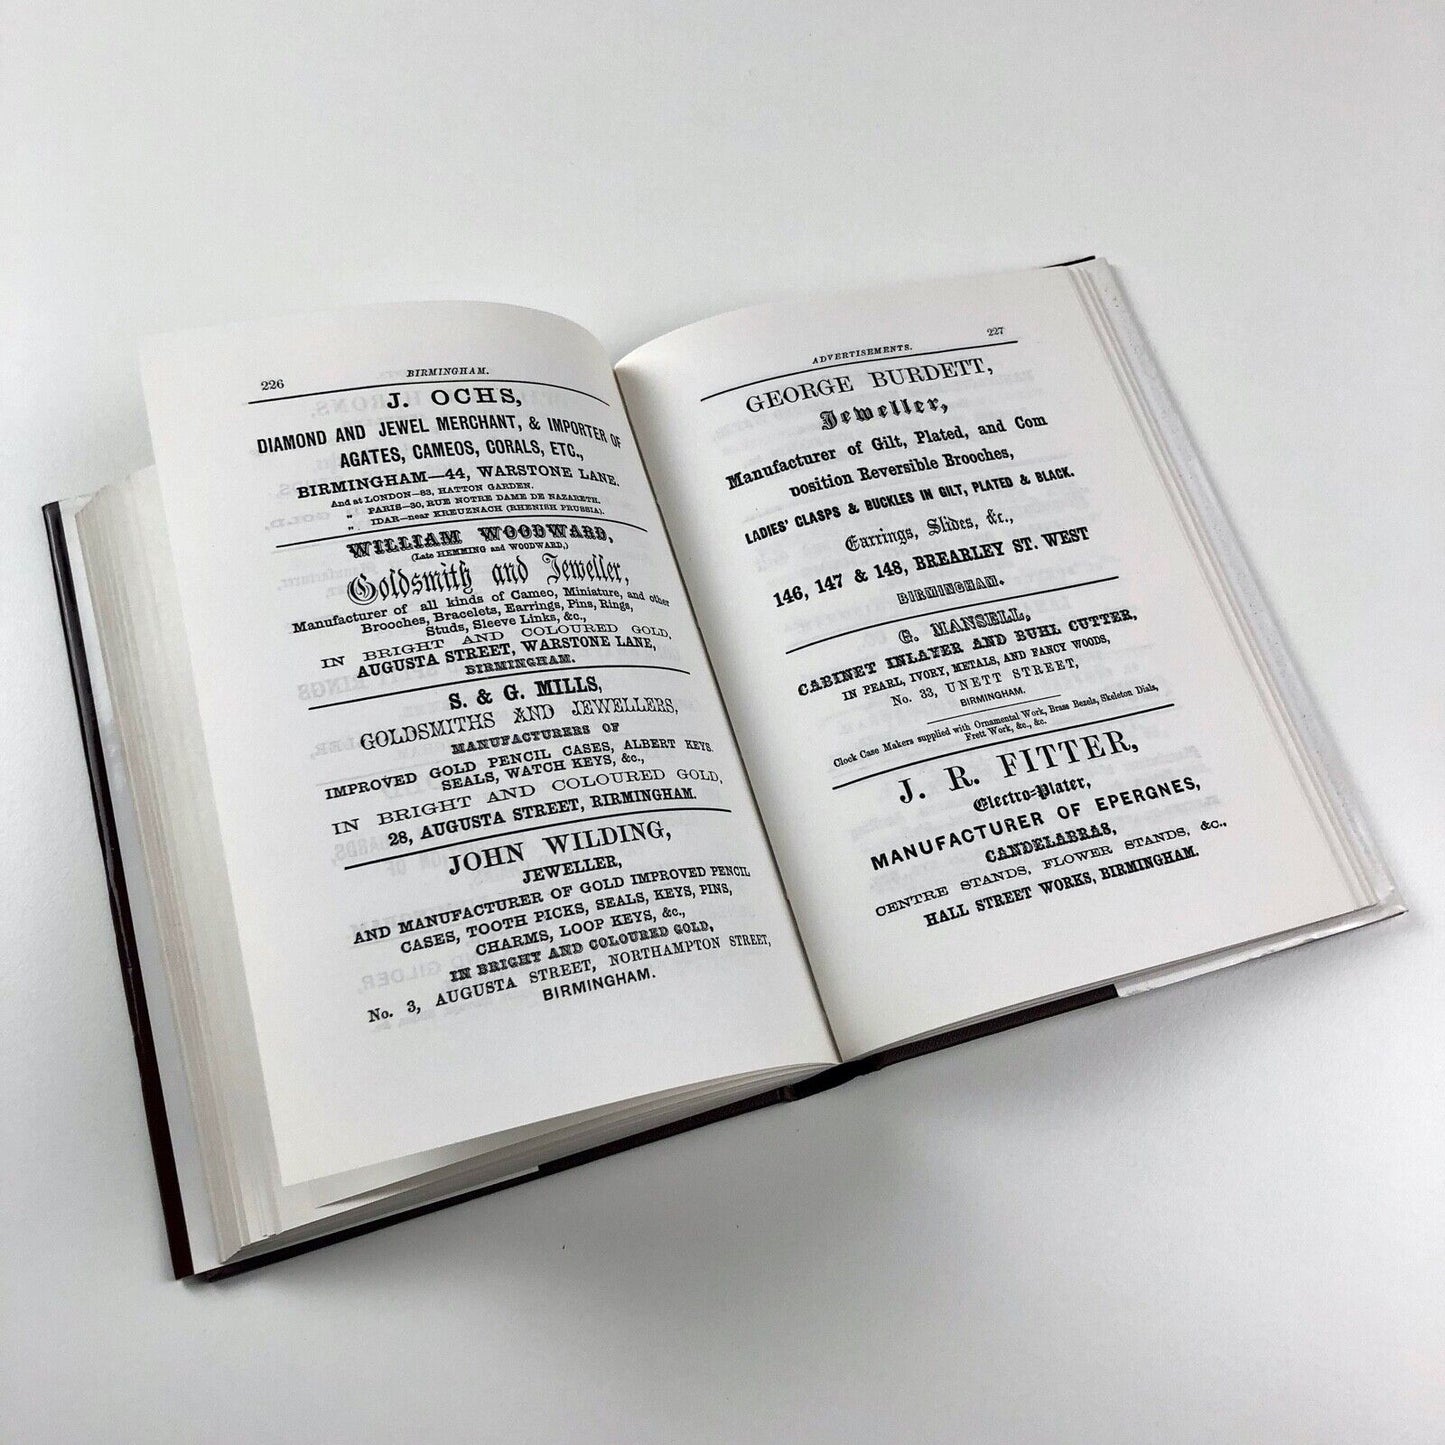 226
BIRMINGHAM.
J. OCHS,
DIAMOND AND JEWEL MERCHANT, & IMPORTER OF
AGATES, CAMEOS, CORALS, ETC.,
BIRMINGHAM—44, WARSTONE LANE.
And at LONDON—83, HATTON GARDEN.
„ PARIS—30, RUE NOTRE DAME DE NAZARETH.
„ IDAR—near KREUZNACH (RHENISH PRUSSIA).
WILLIAM WOODWARD,
(Late HEMMING and WOODWARD,)
Goldsmith and Jeweller,
Manufacturer of all kinds of Cameo, Miniature, and other
Brooches, Bracelets, Earrings, Pins, Rings,
Studs, Sleeve Links, &c.,
IN BRIGHT AND COLOURED GOLD,
AUGUSTA STREET, WARSTONE LANE,
BIRMINGHAM.
S. & G. MILLS,
GOLDSMITHS AND JEWELLERS,
MANUFACTURERS OF
IMPROVED GOLD PENCIL CASES, ALBERT KEYS.
SEALS, WATCH KEYS, &c.,
IN BRIGHT AND COLOURED GOLD,
28, AUGUSTA STREET, BIRMINGHAM.
JOHN WILDING,
JEWELLER,
AND MANUFACTURER OF GOLD IMPROVED PENCIL
CASES, TOOTH PICKS, SEALS, KEYS, PINS,
CHARMS, LOOP KEYS, &c.,
IN BRIGHT AND COLOURED GOLD,
No. 3, AUGUSTA STREET, NORTHAMPTON STREET,
BIRMINGHAM.
ADVERTISEMENTS.
227
GEORGE BURDETT,
Jeweller,
Manufacturer of Gilt, Plated, and Com
position Reversible Brooches,
LADIES' CLASPS & BUCKLES IN GILT, PLATED & BLACK.
Earrings, Slides, &c.,
146, 147 & 148, BREARLEY ST. WEST
BIRMINGHAM.
G. MANSELL,
CABINET INLAYER AND BUHL CUTTER,
IN PEARL, IVORY, METALS, AND FANCY WOODS,
No. 33, UNETT STREET,
BIRMINGHAM.
Clock Case Makers supplied with Ornamental Work, Brass Bezels, Skeleton Dials,
Frett Work, &c., &c.
J. R. FITTER,
Electro-Plater,
MANUFACTURER OF EPERGNES,
CANDELABRAS,
CENTRE STANDS, FLOWER STANDS, &c.,
HALL STREET WORKS, BIRMINGHAM.